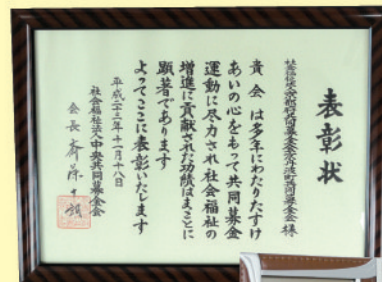 表彰状
社会福祉法人京都府共同募金会京丹波町共同募金会 様
貴会は多年にわたりたすけ
あいの心をもって共同募金
運動に尽力され社会福祉の
増進に貢献された功績はまことに
顕著であります
よってここに表彰いたします
平成二十三年十一月十八日
社会福祉法人中央共同募金会
会長 斎藤十朗